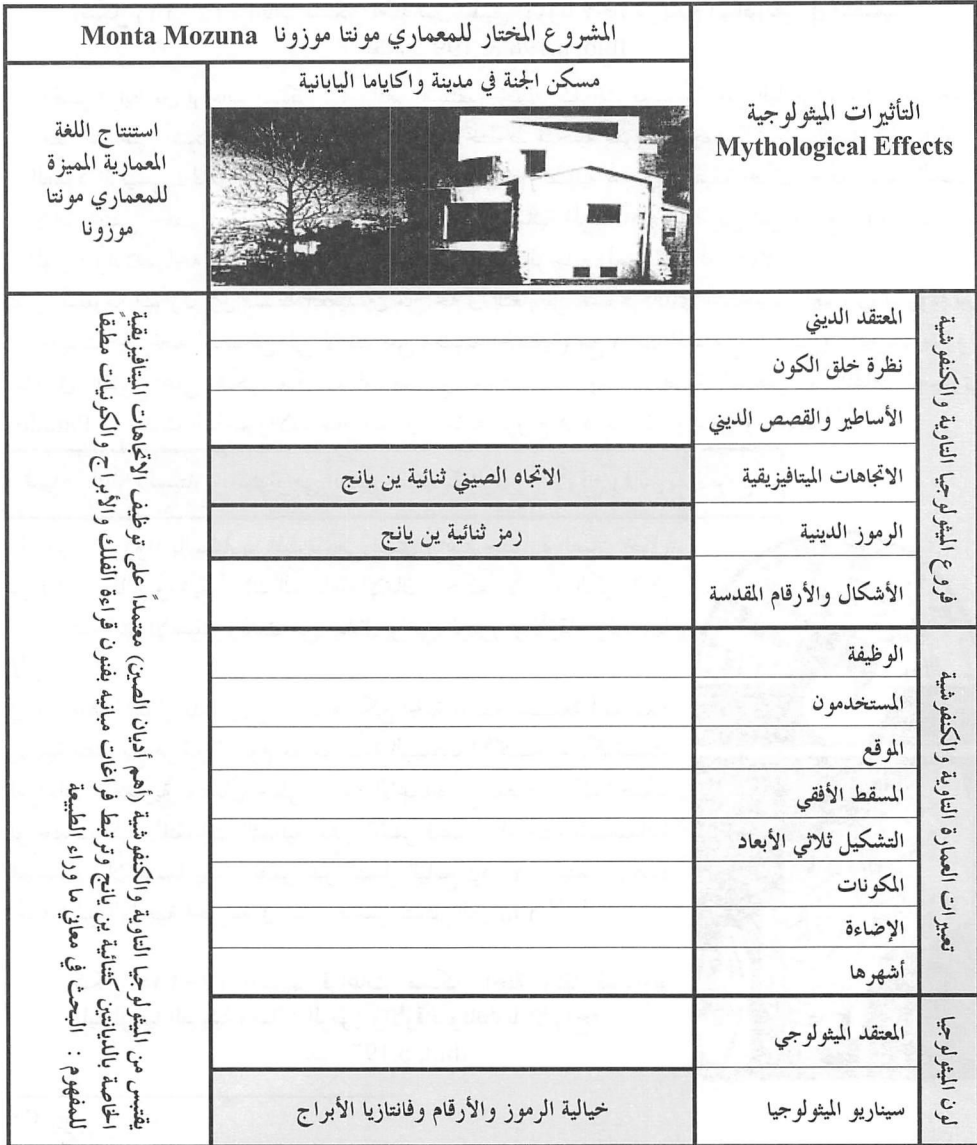 المشروع المختار للمعماري مونتا موزونا Monta Mozuna
التأثيرات الميثولوجية
Mythological Effects
مسكن الجنة في مدينة واكاياما اليابانية
استنتاج اللغة
المعمارية المميزة
للمعماري مونتا
موزونا
فروع الميثولوجيا التاوية والكنفوشية
المعتقد الديني
نظرة خلق الكون
الأساطير والقصص الديني
الاتجاهات الميتافيزيقية
الاتجاه الصيني ثنائية ين يانج
الرموز الدينية
رمز ثنائية ين يانج
الأشكال والأرقام المقدسة
تعبيرات العمارة التاوية والكنفوشية
الوظيفة
المستخدمون
الموقع
المسقط الأفقي
التشكيل ثلاثي الأبعاد
المكونات
الإضاءة
أشهرها
لون الميثولوجيا
المعتقد الميثولوجي
سيناريو الميثولوجيا
خيالية الرموز والأرقام وفانتازيا الأبراج
يقتبس من الميثولوجيا التاوية والكنفوشية (أهم أديان الصين) معتمدًا على توظيف الاتجاهات الميتافيزيقية
الخاصة بالديانتين كثنائية ين يانج وترتبط فراغات مبانيه بفنون قراءة الفلك والأبراج والكونيات مطبقاً
للمفهوم : البحث في معاني ما وراء الطبيعة